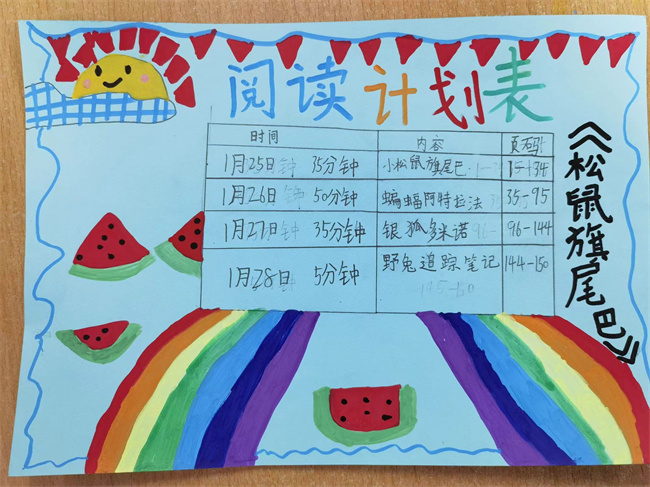 阅读计划表
时间 内容 页码
1月25日 35分钟 小松鼠旗尾巴
1月26日 50分钟 蝙蝠阿特拉法 35-95
1月27日 35分钟 银狐多米诺 96-144
1月28日 5分钟 野兔追踪笔记 144-150
145-150
《松鼠旗尾巴》